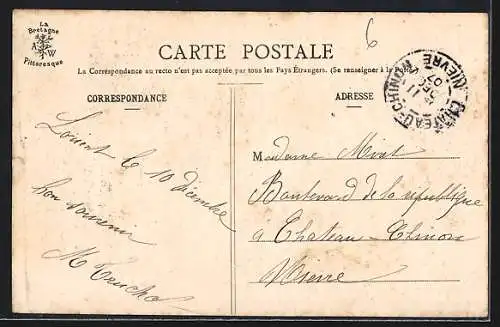 La
Bretagne
A W
Pittoresque
6
CARTE POSTALE
La Correspondance au recto n'est pas acceptée par tous les Pays Étrangers. (Se renseigner à la Poste)
CORRESPONDANCE
ADRESSE
CHATEAU-CHINON
11
DEC
07
NIEVRE
Lorient le 10 décembre
bon souvenir
M
Madame Mirat
Boulevard de la république
a Chateau-Chinon
Nievre